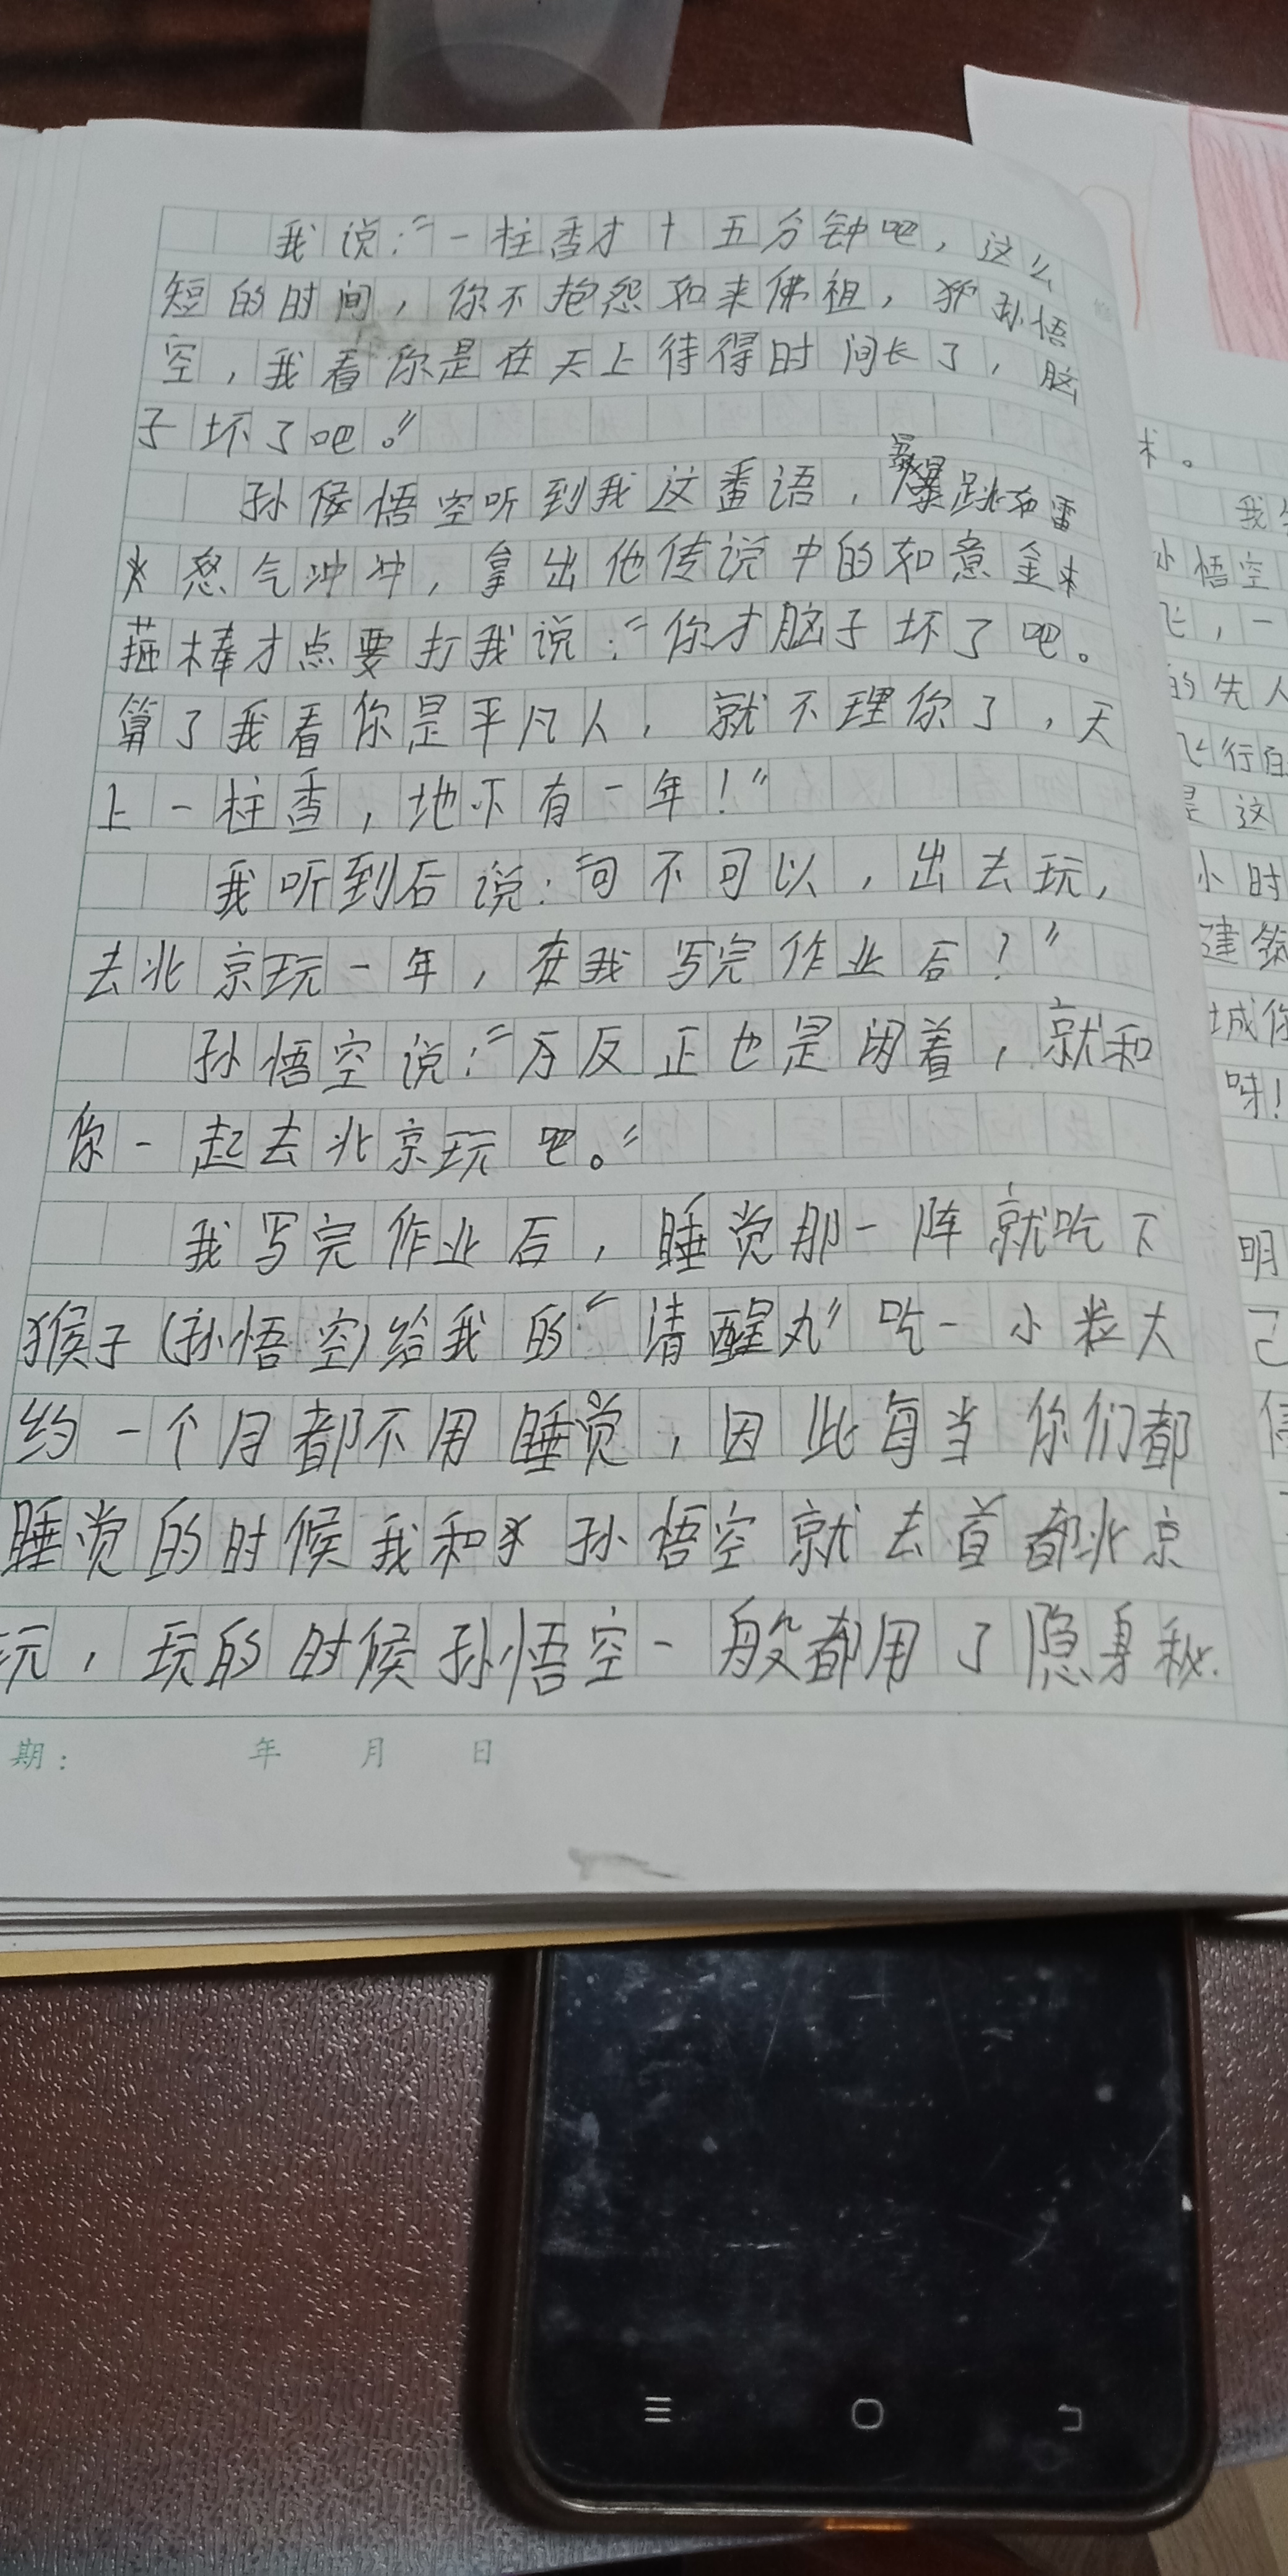 我说：“一柱香才十五分钟吧，这么
短的时间，你不抱怨如来佛祖，孙悟
空，我看你是在天上待得时间长了，脑
子坏了吧。”
孙悟空听到我这番语，暴跳如雷
怒气冲冲，拿出他传说中的如意金
箍棒才点要打我说：“你才脑子坏了吧。
算了我看你是平凡人，就不理你了，天
上一柱香，地下有一年！”
我听到后说：“可不可以，出去玩，
去北京玩一年，在我写完作业后？”
孙悟空说：“反正也是闲着，就和
你一起去北京玩吧。”
我写完作业后，睡觉那一阵就吃下
猴子(孙悟空)给我的“清醒丸”吃一小粒大
约一个月都不用睡觉，因此每当你们都
睡觉的时候我和孙悟空就去首都北京
玩，玩的时候孙悟空一般都用了隐身秘
期： 年 月 日
术。
我
孙悟空
飞，一
的先人
飞行
是这
小时
建筑
城你
呀！
明
己